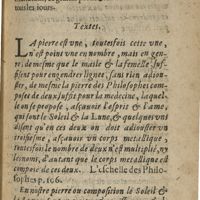 tous les iours.
Textes.
La pierre est vne, toutesfois ceste vne,
n'est point vne en nombre, mais en gen-
re, de mesme que le masle & la femelle suf-
fisent pour engendrer lignee, sans rien adiou-
ster, de mesme la pierre des Philosophes com-
posee de deux, suffit pour la medecine, lequel-
le on propose, asçauoir l'esprit & l'ame,
qui sont le Soleil & la Lune, & quelques vns
disent qu'en ces deux on doit adiouster vn
troisiesme, asçauoir vn corps metallique,
toutesfois le nombre de deux n'est multiplié, ny
le nom, d'autant que le corps metallique est
composé de ces deux. L'eschelle des Philo-
sophes p. 106.
En nostre pierre ou composition le Soleil &